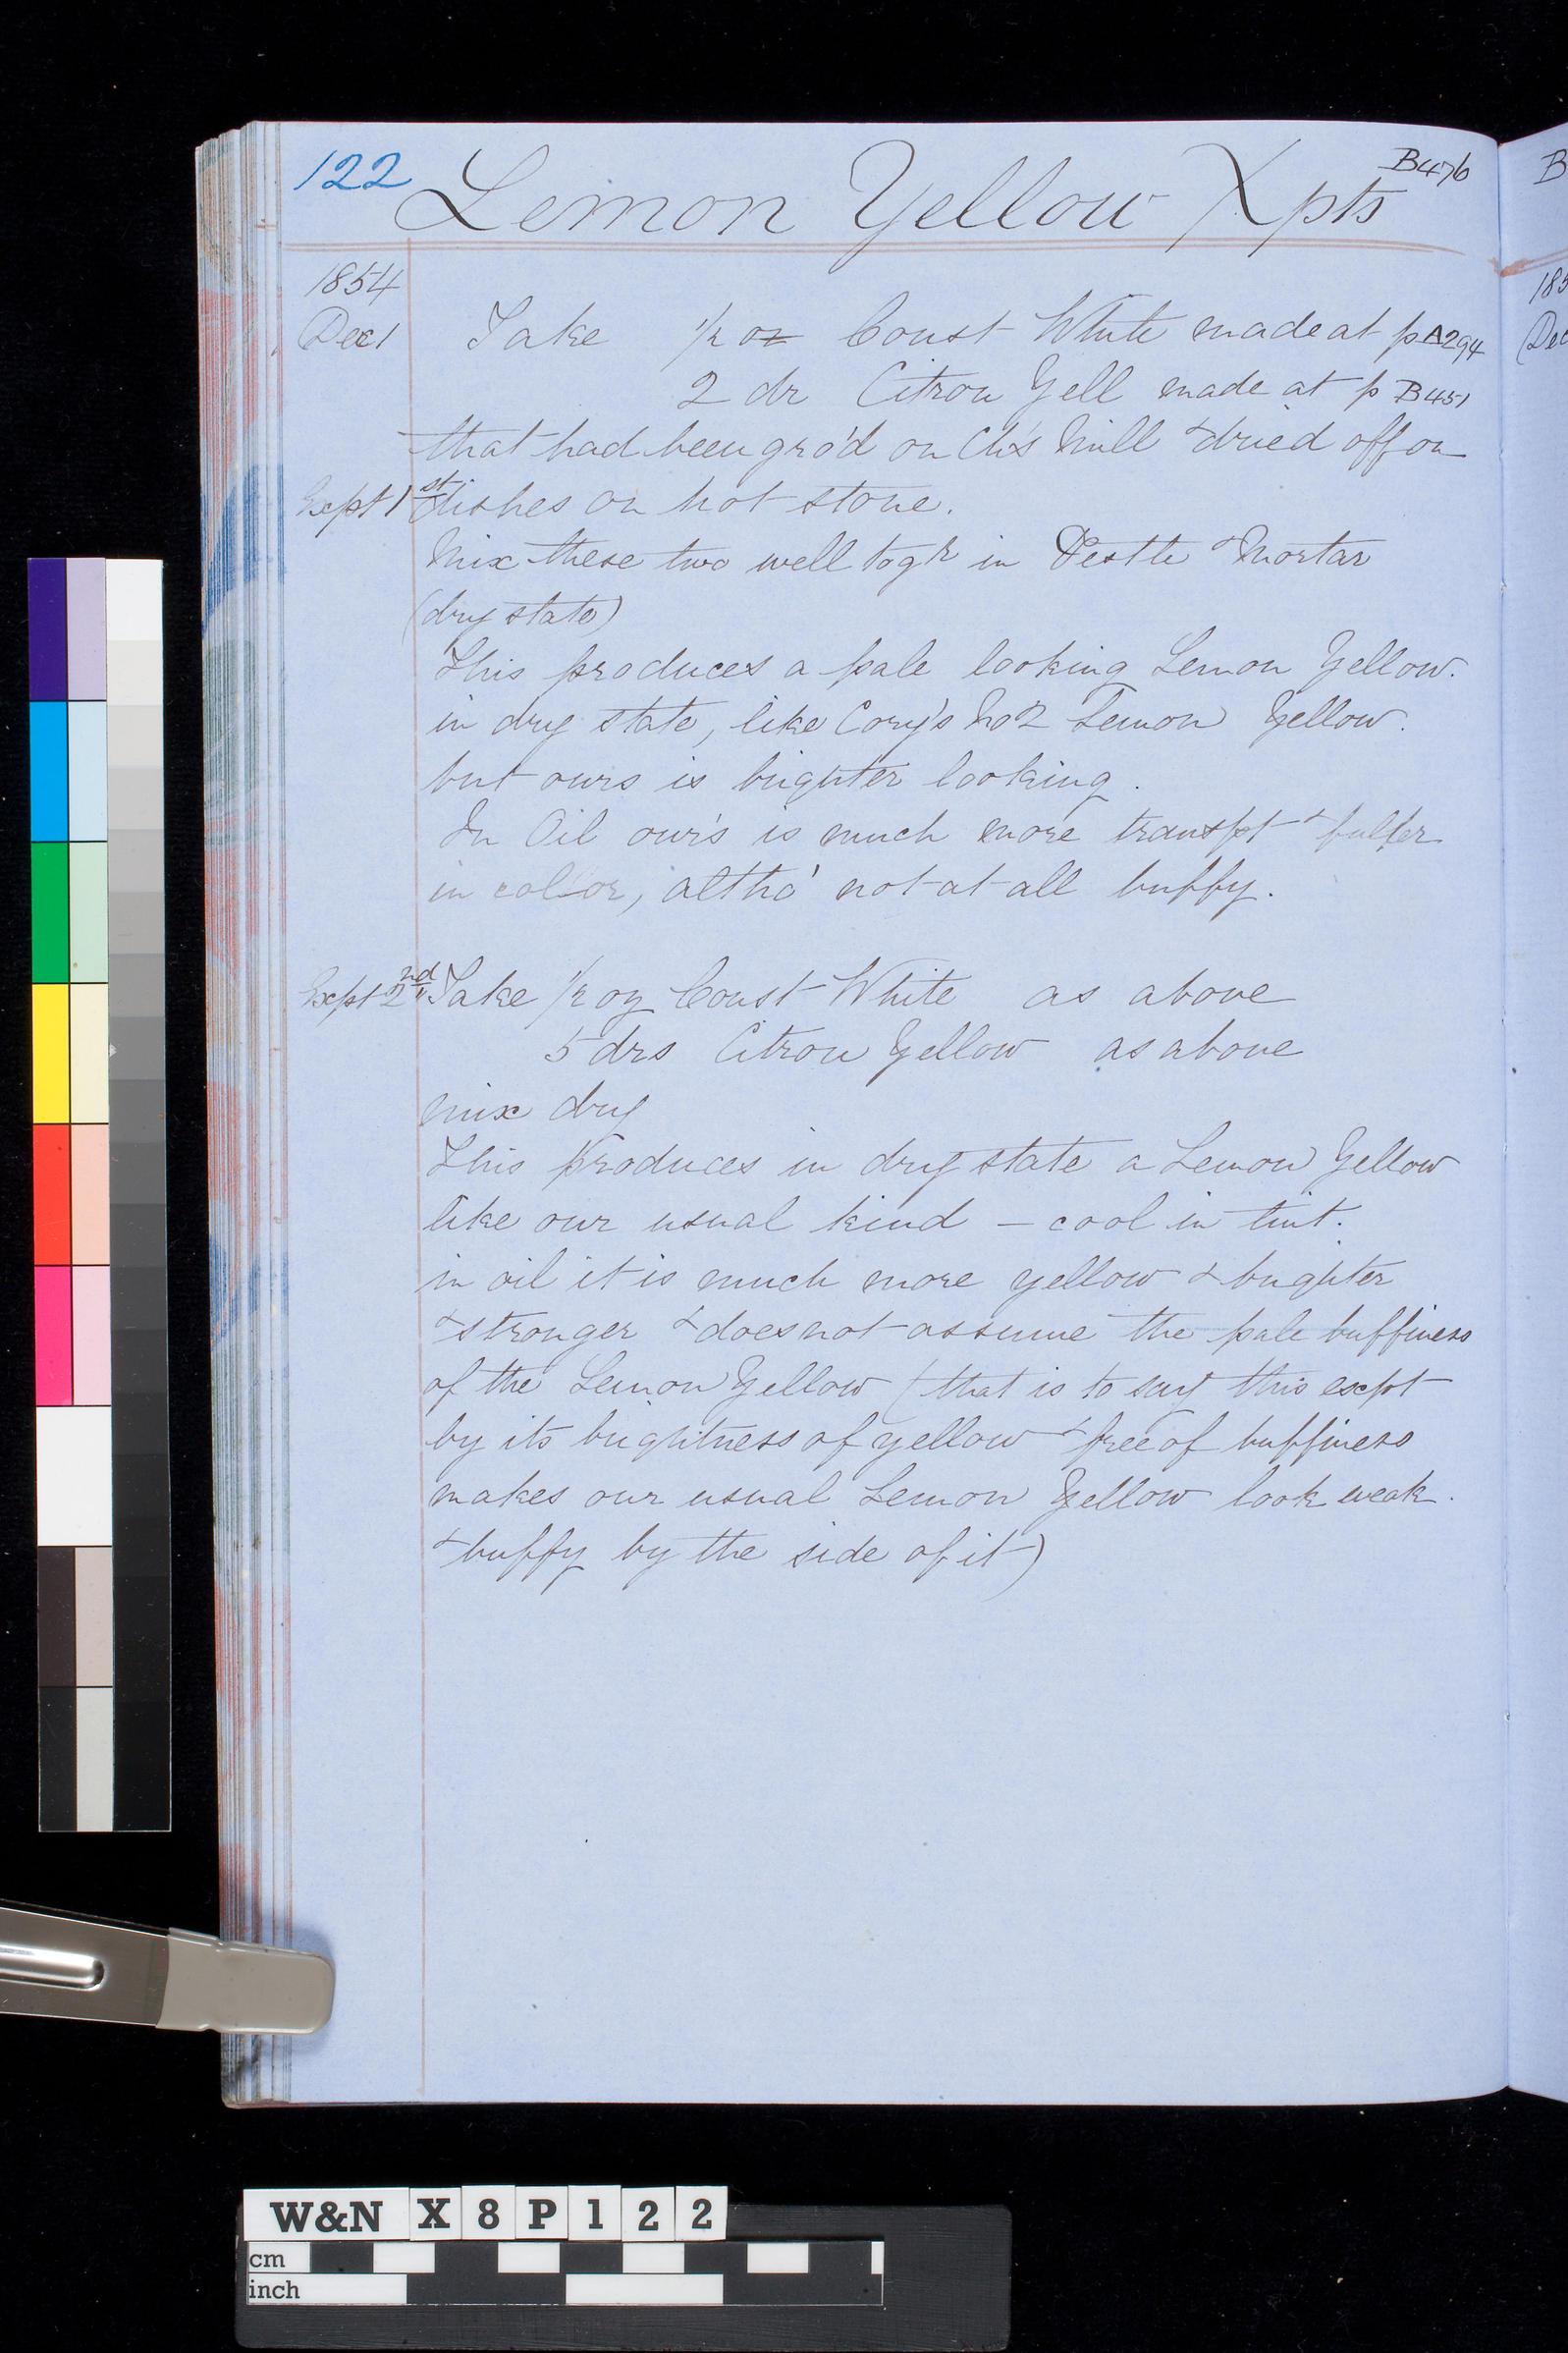 122 Lemon Yellow Xpts B476
1854
Dec 1 Take 1/2 oz Const White made at p A294
2 dr Citron Yell made at p B451
that had been gro'd on Ch's Mill & dried off on
Expt 1st dishes on hot stone.
Mix these two well togr in Pestle & Mortar
(dry state)
This produces a pale looking Lemon Yellow.
in dry state, like Cory's No 2 Lemon Yellow.
but ours is brighter looking.
In Oil our's is much more transpt & fuller
in color, altho' not at all buffy.
Expt 2nd Take 1/2 oz Const White as above
5 drs Citron Yellow as above
mix dry
This produces in dry state a Lemon Yellow
like our usual kind – cool in tint.
in oil it is much more yellow & brighter
& stronger & does not assume the pale buffiness
of the Lemon Yellow (that is to say this expt
by its brightness of yellow & free of buffiness
makes our usual Lemon Yellow look weak.
& buffy by the side of it)
B
185
Dec
W&N X8P122
cm
inch